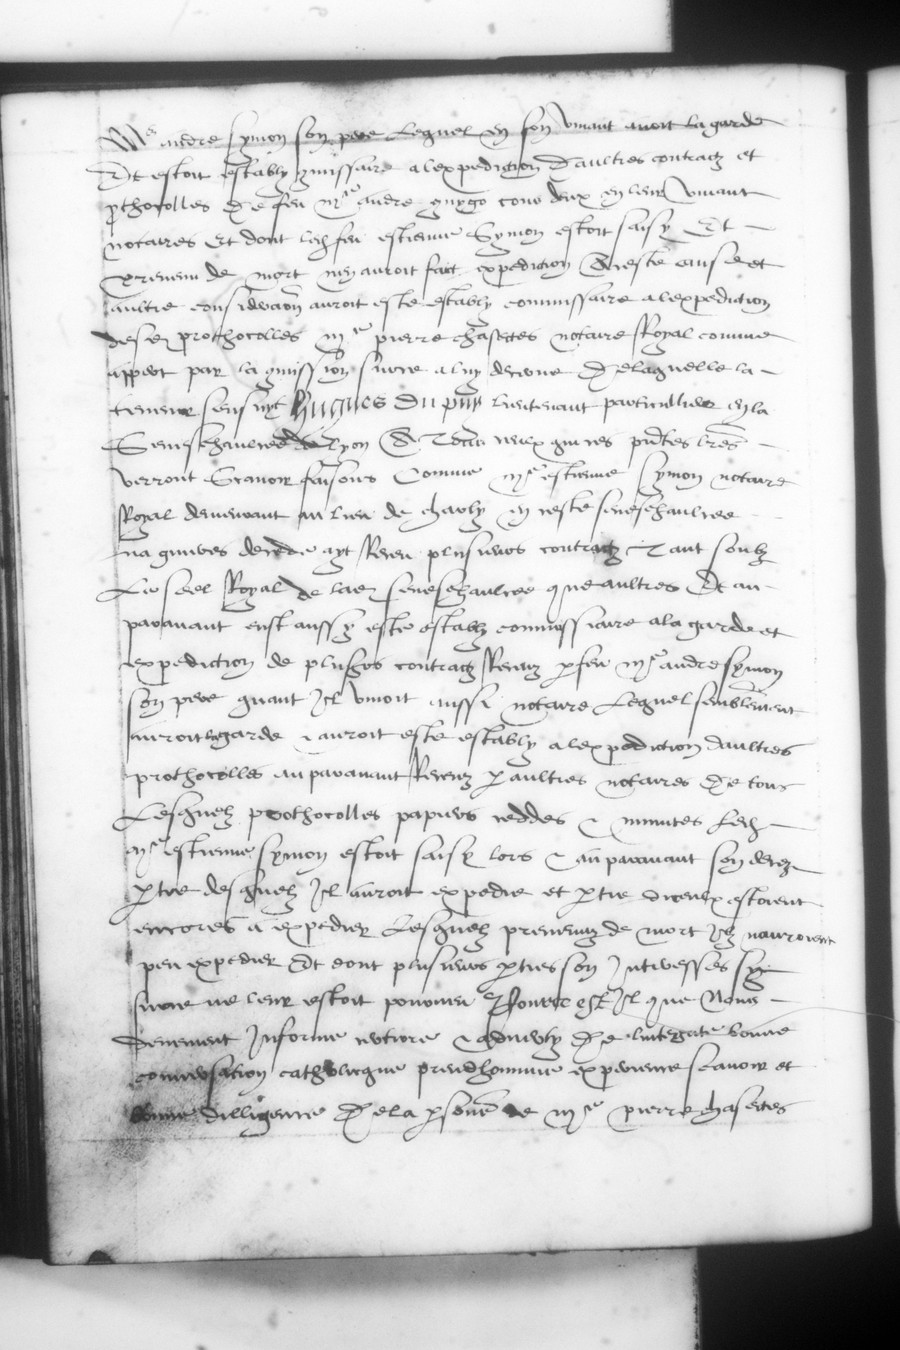 Me andre symon son pere Lequel en son vivant avoit la garde
Et estoit estably commissaire a lexpedition daultres contractz et
prothocolles de feu me andre guygo eulx deux en leur vivant
notaires Et dont led feu estienne Symon estoit saisy Et
prevenu de mort nen auroit faict expedition A ceste cause et
aultre consideraon auroit este estably commissaire a lexpedition
desd prothocolles me pierre chasettes notaire Royal comme
appert par la commission sur ce a luy decernee De laquelle la
teneur sensuyt Hugues Dupuy lieutenant particullier en la
Seneschaulcee de lyon A tous ceulx qui ces pntes lres
verront Scavoir faisons Comme me estienne Symon notaire
Royal demeurant au lieu de charly en ceste seneschaulcee
na gueres decede ayt Receu plusieurs contractz Tant soubz
Le seel Royal de lad seneschaulcee que aultres Et au
paravant eust aussy este estably commissaire a la garde et
expedition de plusrs contractz Receuz par feu me andre symon
son pere quant Il vivoit aussi notaire Lequel semblement
auroit la garde & auroit este estably a lexpedition daultres
prothocolles au paravant Receuz par aultres notaires De tous
Lesquelz prothocolles papiers ceddes & minutes Led
me estienne symon estoit saisy lors & au paravant son deces
partie desquelz Il auroit expedie et partie diceulx estoient
encores a expedier Lesquelz prevenuz de mort Ilz nauroient
peu expedier Et dont plusieurs parties son Interesses sy
sur ce ne leur estoit pourveu Pource est Il que Nous
deuement Informe certiore & adverty De lintegrite bonne
conversation catholicque preudhommie experience scavoir et
bonne dilligence De la personne de me pierre chasettes